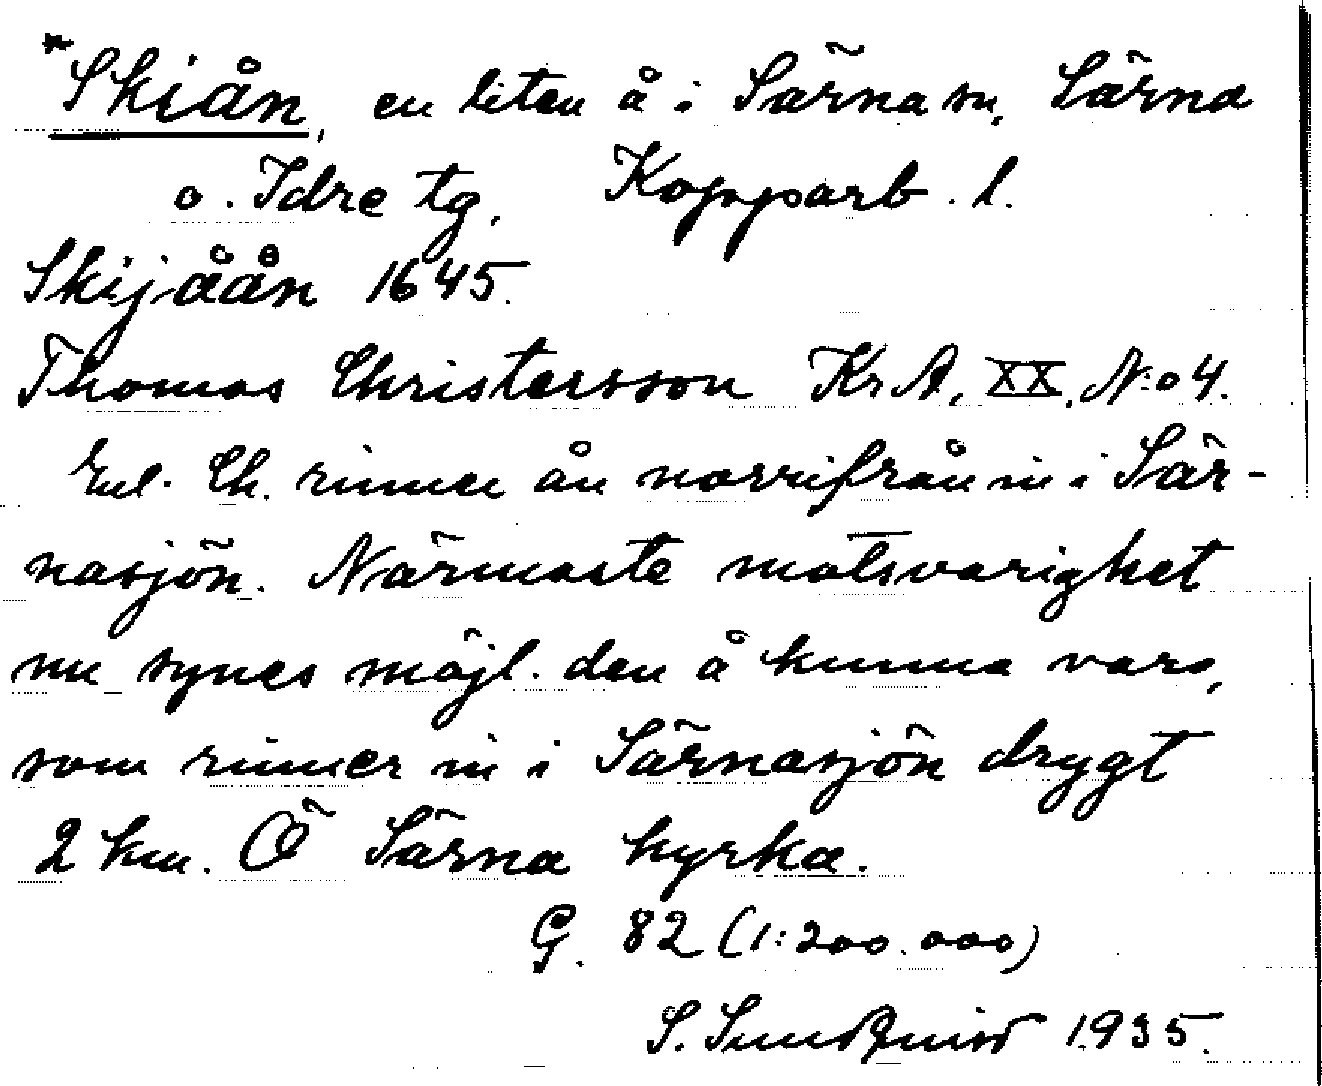 *Skiån, en liten å i Särna sn, Särna
o. Idre tg, Kopparb. l.
Skijåån 1645.
Thomas Christersson Kr A, XX, N:o 4.
Enl. Ch. rinner ån norrifrån in i Sär-
nasjön. Närmaste motsvarighet
nu synes möjl. den å kunna vara,
som rinner in i Särnasjön drygt
2 km. Ö Särna kyrka.
G. 82 (1:200.000)
S. Sundquist 1935.